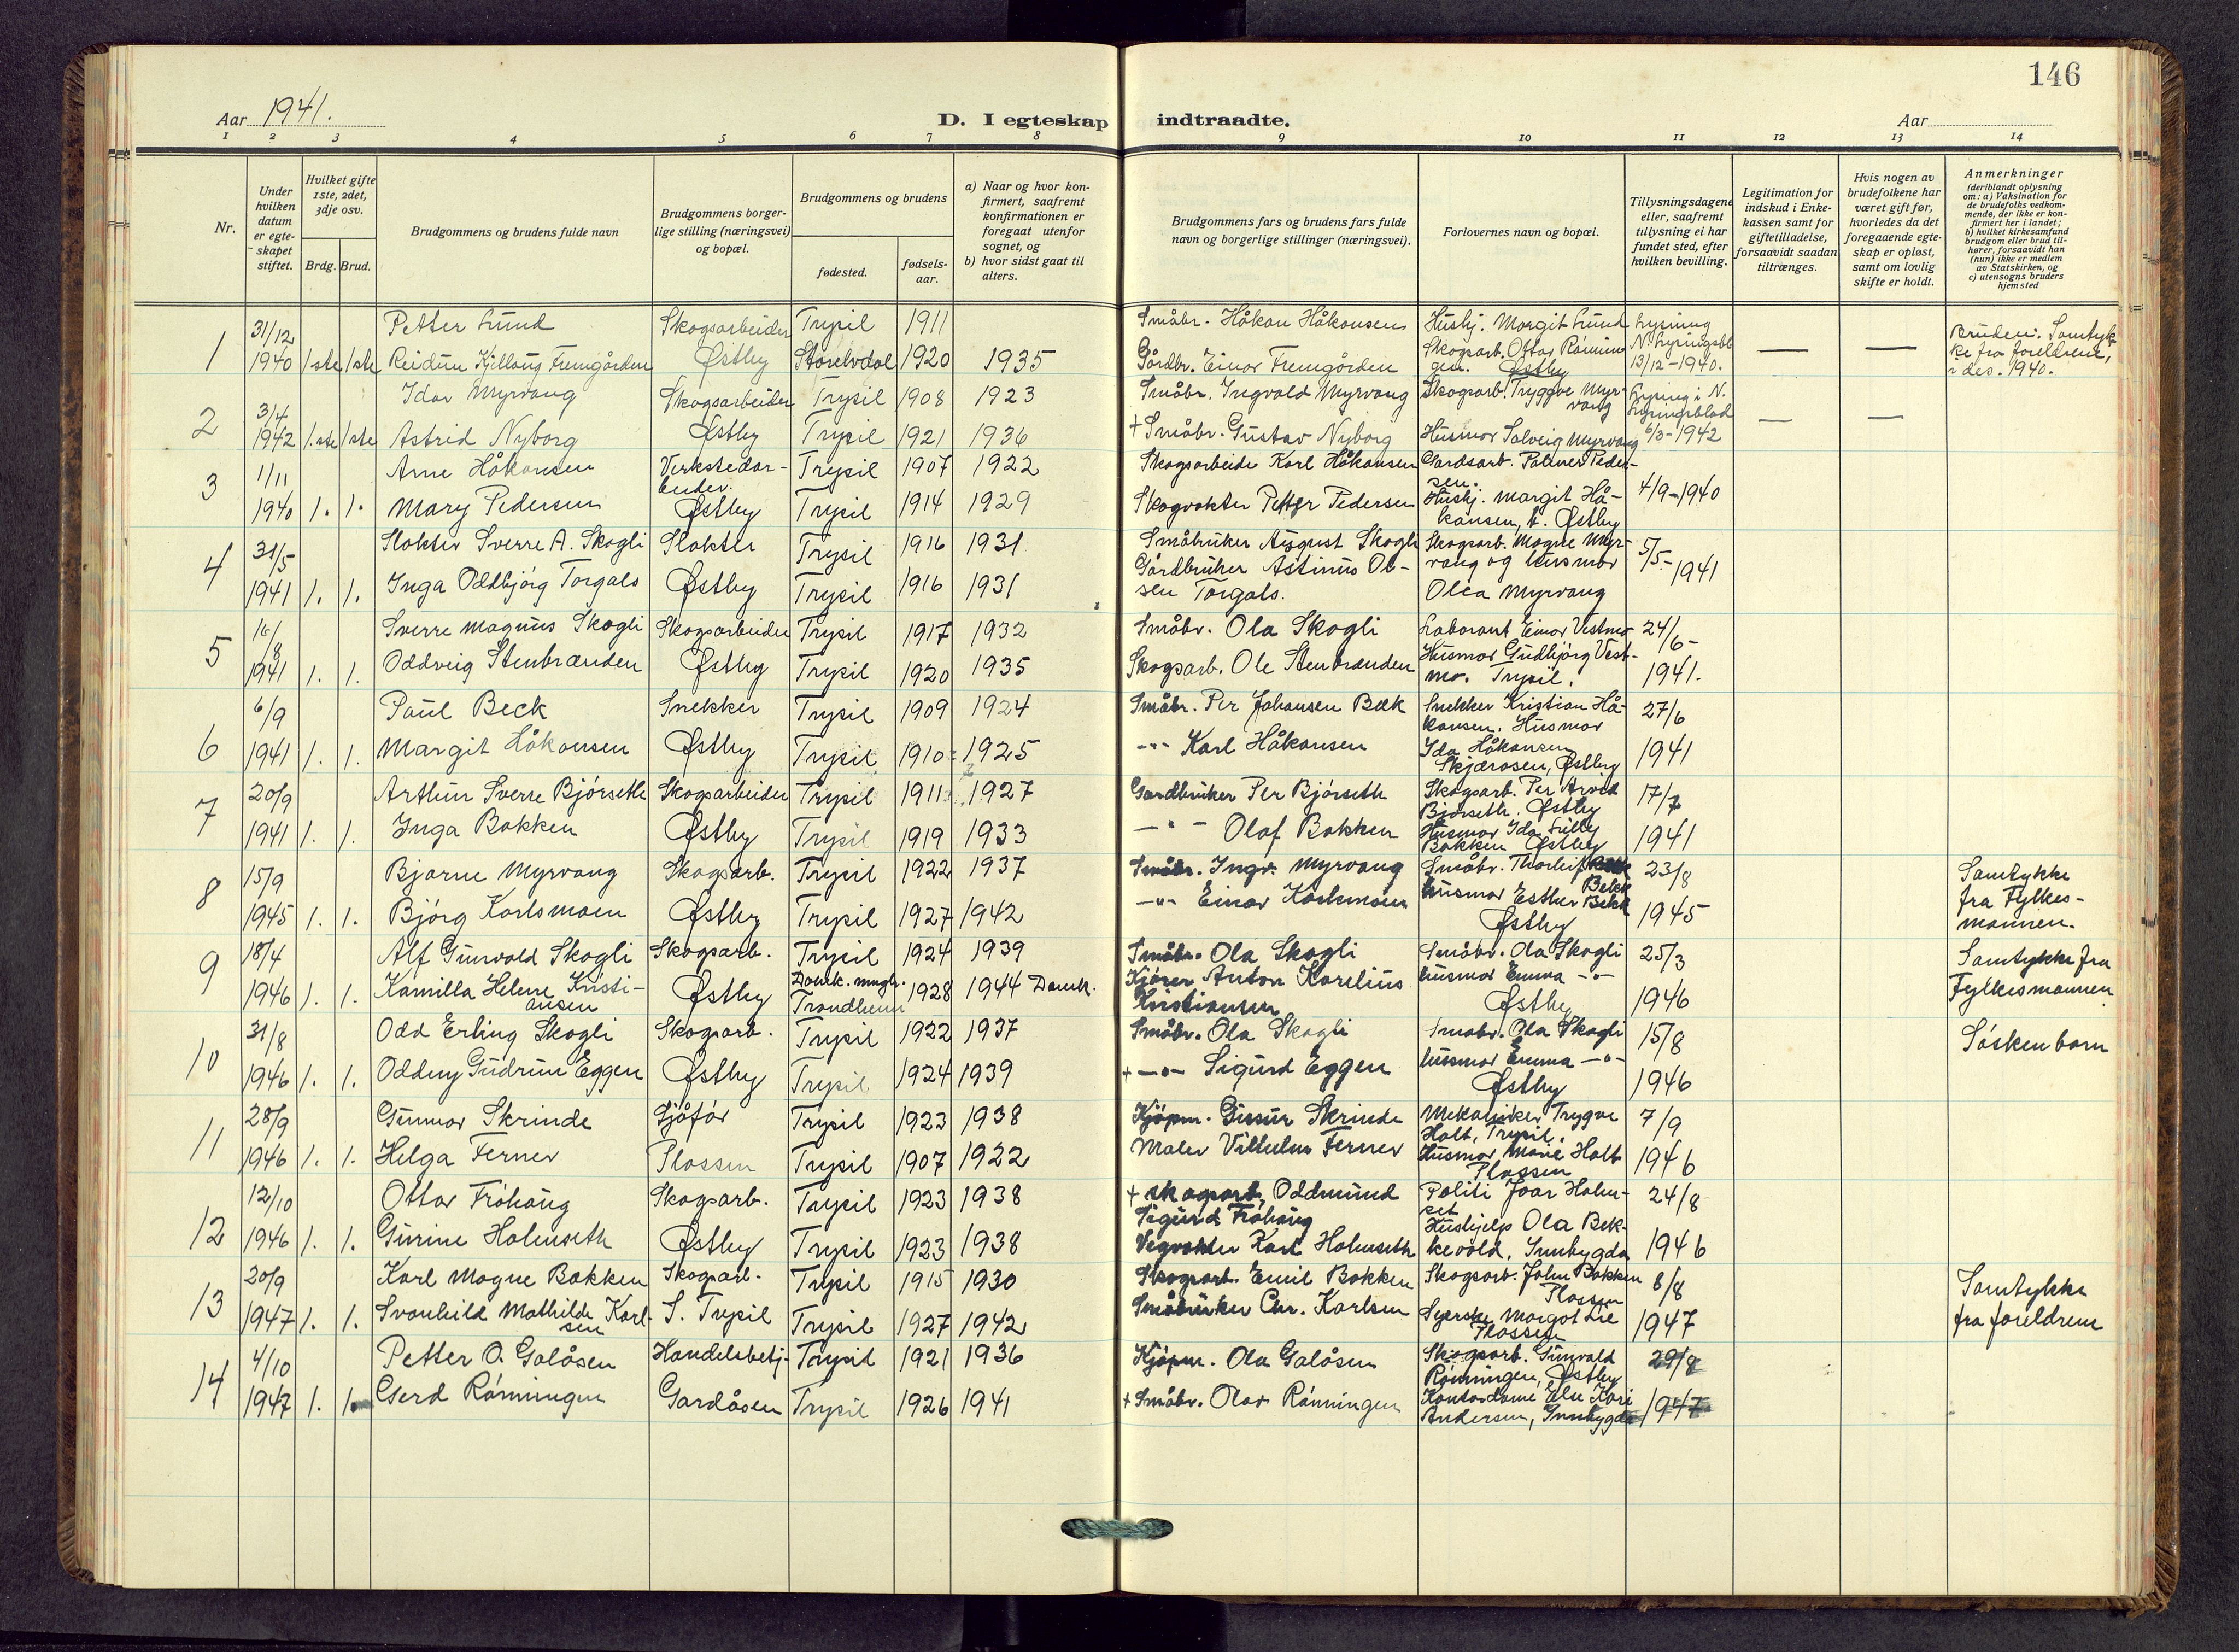 146
Aar 1941.
D. I egteskap indtraadte.
Aar
1 2 3 4 5 6 7 8 9 10 11 12 13 14
Nr.
Under hvilken datum er egteskapet stiftet.
Hvilket gifte 1ste, 2det, 3dje osv.
Brdg. Brud.
Brudgommens og brudens fulde navn
Brudgommens borgerlige stilling (næringsvei) og bopæl.
Brudgommens og brudens
fødested.
fødselsaar.
a) Naar og hvor konfirmert, saafremt konfirmationen er foregaat utenfor sognet, og
b) hvor sidst gaat til alters.
Brudgommens fars og brudens fars fulde navn og borgerlige stillinger (næringsvei).
Forlovernes navn og bopæl.
Tillysningsdagene eller, saafremt tillysning ei har fundet sted, efter hvilken bevilling.
Legitimation for indskud i Enkekassen samt for giftetilladelse, forsaavidt saadan tiltrænges.
Hvis nogen av brudefolkene har været gift før, hvorledes da det foregaaende egteskap er opløst, samt om lovlig skifte er holdt.
Anmerkninger
(deriblandt oplysning om: a) Vaksination for de brudefolks vedkommende, der ikke er konfirmert her i landet; b) hvilket kirkesamfund brudgom eller brud tilhører, forsaavidt han (hun) ikke er medlem av Statskirken, og c) utensogns bruders hjemsted
1 31/12 Petter Lund Skogsarbeider Trysil 1911 Småbr. Håkon Håkonsen Hushj. Margit Lund Lysning
1940 1ste 1ste Reidun Kjellaug Fremgården Østby Storelvdal 1920 1935 Gårdbr. Einar Fremgården Skogsarb. Ottar Rønningen. Østby N. Lysningsbl. 13/12-1940. — — Bruden: Samtykke fra foreldrene, des. 1940.
2 3/4 Idar Myrvang Skogsarbeider Trysil 1908 1923 Småbr. Ingvald Myrvang Skogsarb. Tryggve Myrvang Lysning i N. Lysningsblad
1942 1.ste 1ste Astrid Nyborg Østby Trysil 1921 1936 + Småbr. Gustav Nyborg Husmor Solveig Myrvang 6/3-1942 — —
3 1/11 Arne Håkonsen Verkstedarbeider. Trysil 1907 1922 Skogsarbeider Karl Håkonsen Gardsarb. Palmer Pedersen.
1940 1. 1. Mary Pedersen Østby Trysil 1914 1929 Skogvokter Petter Pedersen Hushj. Margit Håkonsen, b. Østby 4/9-1940
4 31/5 Slakter Sverre A. Skogli Slakter Trysil 1916 1931 Småbruker August Skogli Skogsarb. Magne Myrvang og Husmor
1941 1. 1. Inga Oddbjørg Torgals Østby Trysil 1916 1931 Gårdbruker Astinus Olsen Torgals. Olea Myrvang 5/5-1941
5 16/8 Sverre Magnus Skogli Skogsarbeider Trysil 1917 1932 Småbr. Ola Skogli Laborant Einar Vestmo 24/6-
1941 1. 1. Oddveig Stenbrænden Østby Trysil 1920 1935 Skogsarb. Ole Stenbrænden Husmor Gudbjørg Vestmo. Trysil. 1941.
6 6/9 Paul Beck Snekker Trysil 1909 1924 Småbr. Per Johansen Bæk Snekker Kristian Håkonsen, Husmor 27/6
1941 1. 1. Margit Håkonsen Østby Trysil 1910 1925 -"- Karl Håkonsen Ida Håkonsen Skjærosen, Østby 1941
7 20/9 Arthur Sverre Bjørseth Skogsarbeider Trysil 1911 1927 Gardbruker Per Bjørseth Skogsarb. Per Arvid Bjørseth. Østby 17/7
1941 1. 1. Inga Bakken Østby Trysil 1919 1933 -"- Olaf Bakken Husmor Ida Lilly Bakken Østby 1941
8 15/9 Bjarne Myrvang Skogsarb. Trysil 1922 1937 Småbr. Ingv. Myrvang Småbr. Thorleif Bekk 23/8 Samtykke
1945 1. 1. Bjørg Karlsmoen Østby Trysil 1927 1942 -"- Einar Karlsmoen husmor Esther Bekk Østby 1945 fra Fylkesmannen.
9 18/4 Alf Gunvald Skogli Skogsarb. Trysil 1924 1939 Småbr. Ola Skogli Småbr. Ola Skogli 25/3 Samtykke fra
1946 1. 1. Kamilla Helene Kristiansen Østby Domk. mngh. Trondheim 1928 1944 Domk. Kjører Anton Karelius Kristiansen husmor Emma -"- Østby 1946 Fylkesmannen
10 31/8 Odd Erling Skogli Skogsarb. Trysil 1922 1937 Småbr. Ola Skogli Småbr. Ola Skogli 15/8 Søskenbarn
1946 1. 1. Oddny Gudrun Eggen Østby Trysil 1924 1939 + -"- Sigurd Eggen husmor Emma -"- Østby 1946
11 28/9 Gunnar Skrinde Sjåfør Trysil 1923 1938 Kjøpm. Gissur Skrinde Mekaniker Trygve Holt, Trysil. 7/9
1946 1. 1. Helga Ferner Plassen Trysil 1907 1922 Maler Vilhelm Ferner Husmor Marie Holt Plassen 1946
12 12/10 Ottar Frøhaug Skogsarb. Trysil 1923 1938 + skogsarb. Oddmund Sigurd Frøhaug Politi Joar Holmset 24/8
1946 1. 1. Gurine Holmseth Østby Trysil 1923 1938 Vegvokter Karl Holmseth Hushjelp Ola Bekkevold, Innbygda 1946
13 20/9 Karl Magne Bakken Skogsarb. Trysil 1915 1930 Skogsarb. Emil Bakken Skogsarb. John Bakken Plassen 8/8 Samtykke
1947 1. 1. Svanhild Mathilde Karlsen S. Trysil Trysil 1927 1942 Småbruker Chr. Karlsen Syerske Margot Lie Plassen 1947 fra foreldrene
14 4/10 Petter O. Galåsen Handelsbetj. Trysil 1921 1936 Kjøpm. Ola Galåsen Skogsarb. Gunvald Rønningen, Østby 29/8
1947 1. 1. Gerd Rønningen Gardåsen Trysil 1926 1941 + Småbr. Olav Rønningen Kontordame Else Kari Andersen, Innbygda 1947